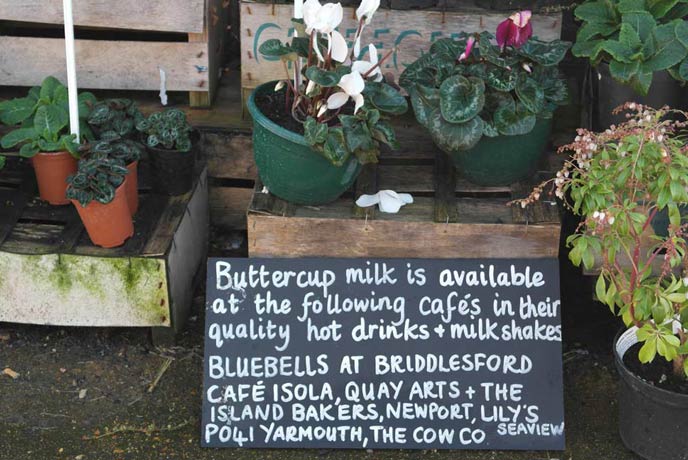 Buttercup milk is available
at the following cafés in their
quality hot drinks + milkshakes
BLUEBELLS AT BRIDDLESFORD
CAFÉ ISOLA, QUAY ARTS + THE
ISLAND BAKERS, NEWPORT, LILY'S
PO41 YARMOUTH, THE COW CO SEAVIEW